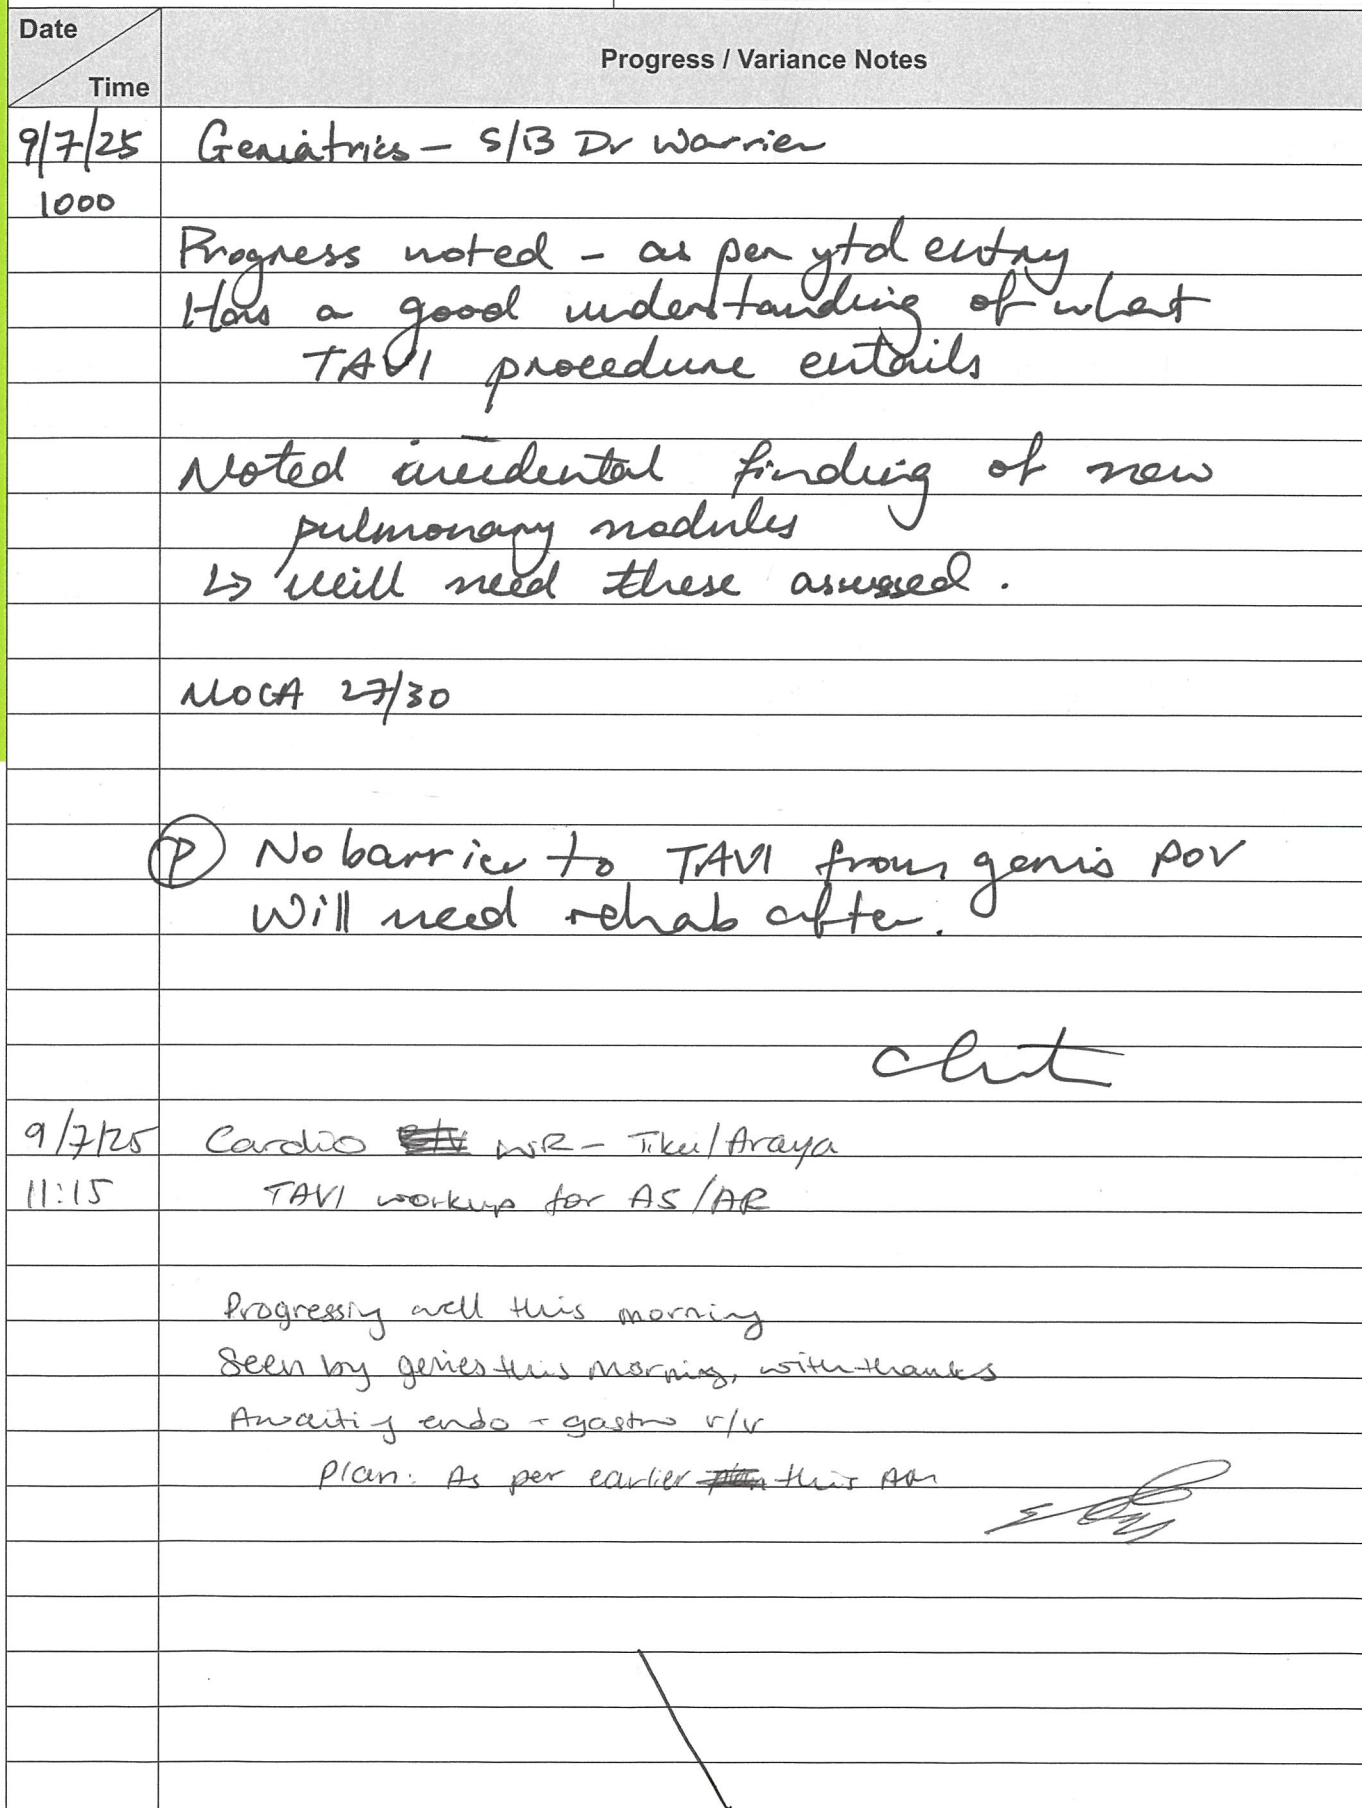 Date
Time
Progress / Variance Notes
9/7/25 Geriatrics – S/B Dr Warrier
1000
Progress noted – as per ytd entry
Has a good understanding of what
TAVI procedure entails
Noted incidental finding of new
pulmonary nodules
↳ will need these assessed.
MOCA 27/30
Ⓟ No barrier to TAVI from geris POV
Will need rehab after.
9/7/25 Cardio WR – /Araya
11:15 TAVI workup for AS/AR
Progressing well this morning
Seen by geries this morning, with thanks
Awaiting endo + gastro r/v
Plan: As per earlier this AM